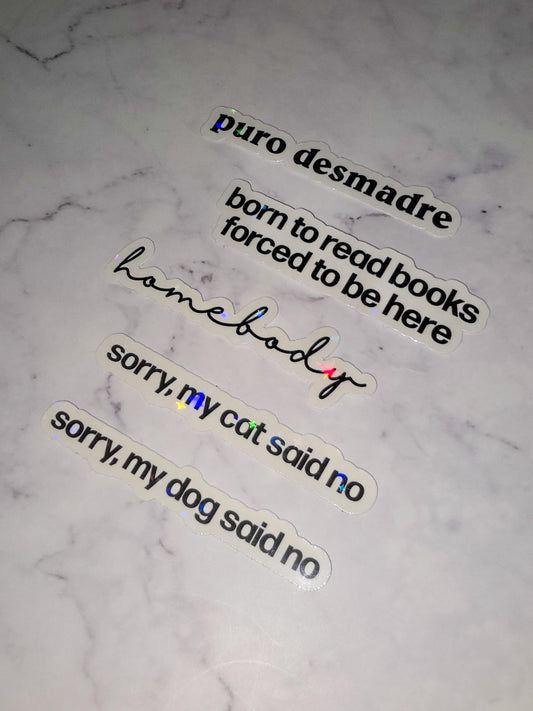 puro desmadre
born to read books
forced to be here
homebody
sorry, my cat said no
sorry, my dog said no